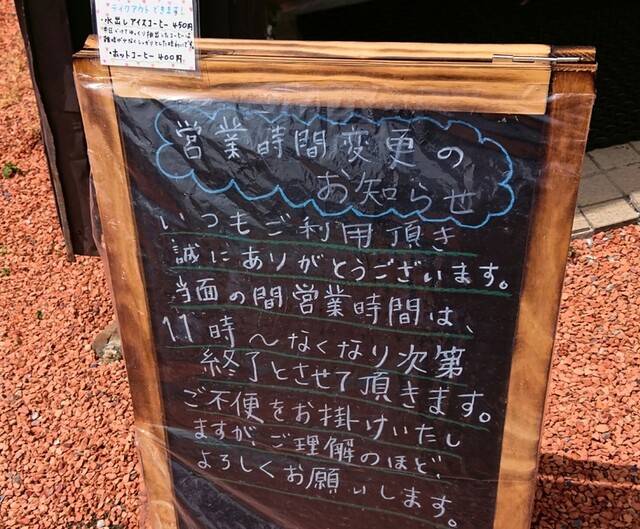 テイクアウトできます!
・水出しアイスコーヒー450円
・ホットコーヒー 400円
営業時間変更の
お知らせ
いつもご利用頂き
誠にありがとうございます。
当面の間営業時間は、
11時〜なくなり次第
終了とさせて頂きます。
ご不便をお掛けいたし
ますが、ご理解のほど、
よろしくお願いします。